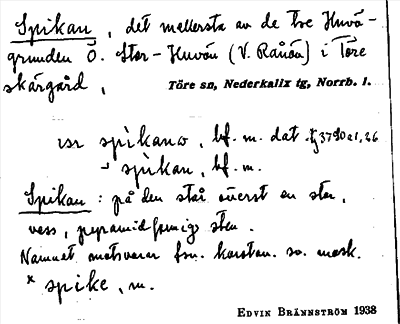 Spikan, det mellersta av de tre Huvö-
grunden Ö. Stor-Huvön (V. Rånön) i Töre
skärgård, Töre sn, Nederkalix tg, Norrb. l.
spìkano, bf. m. dat.
spìkan, bf. m.
Spikan : på den står överst en stor,
vass, pyramidformig sten.
Namnet motsvarar fsv. konstr. sv. mask.
* spike, m.
EDVIN BRÄNNSTRÖM 1938